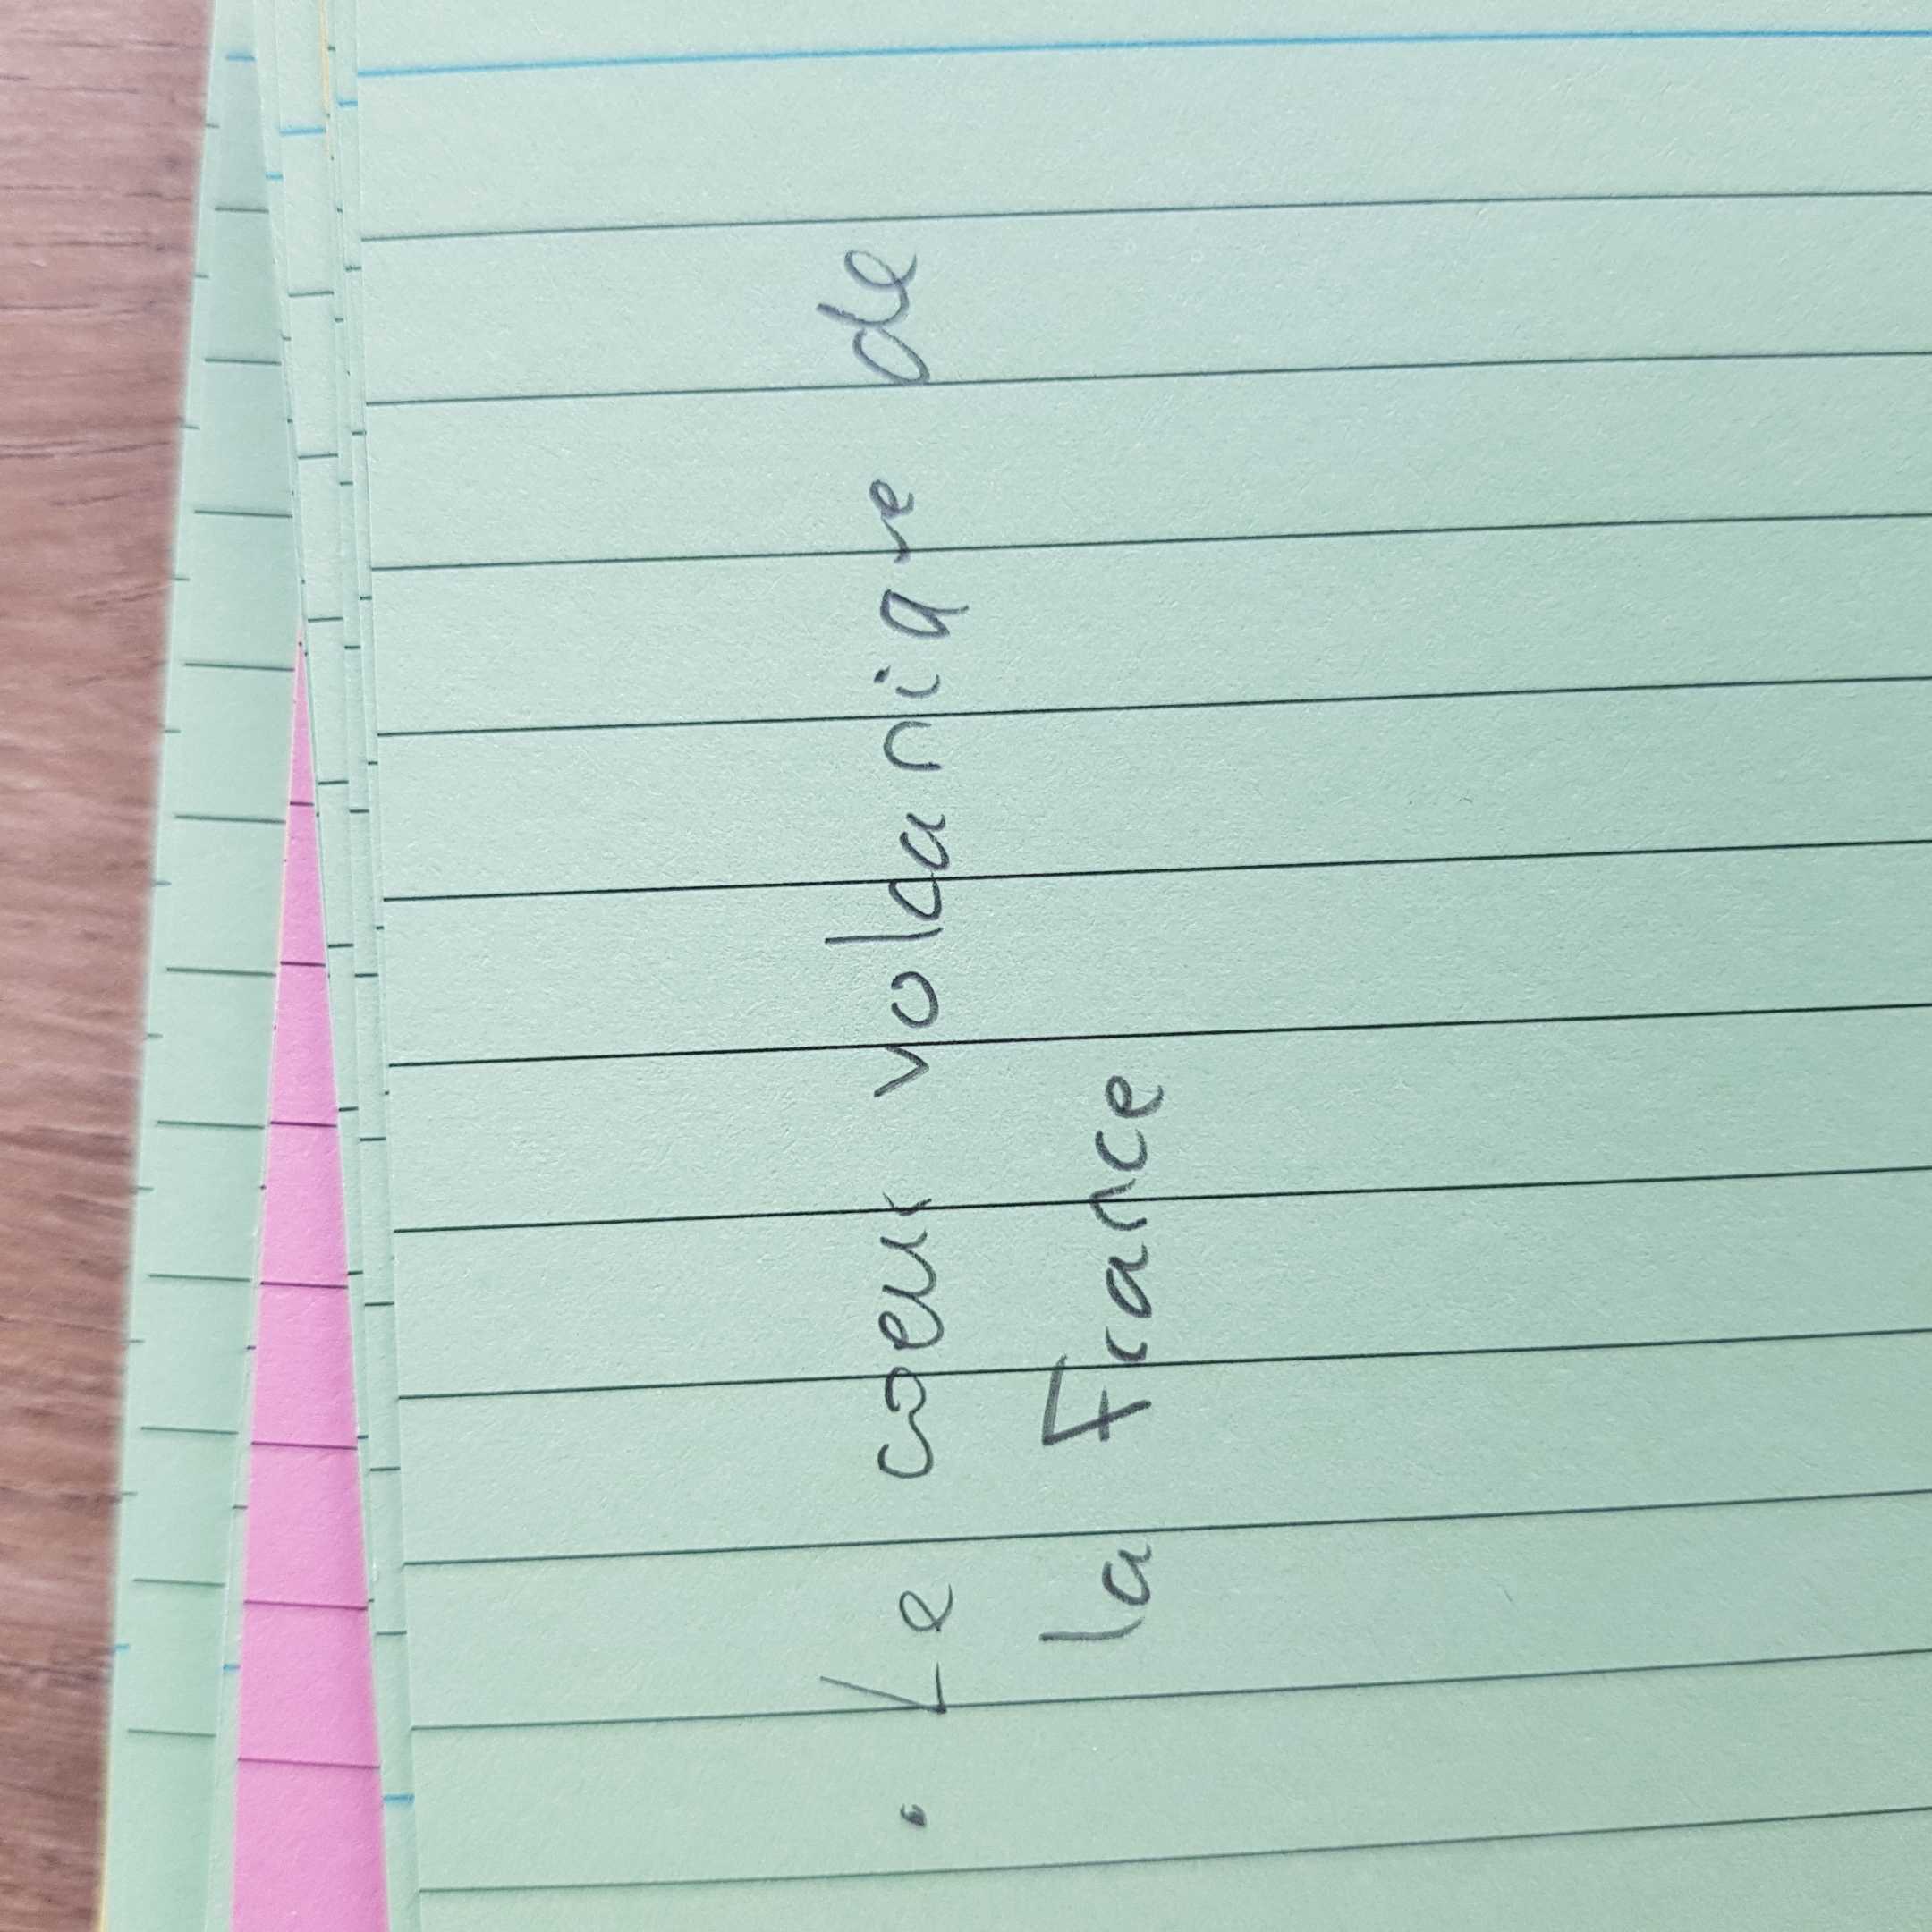 . Le coeur volcaniqre de
la France